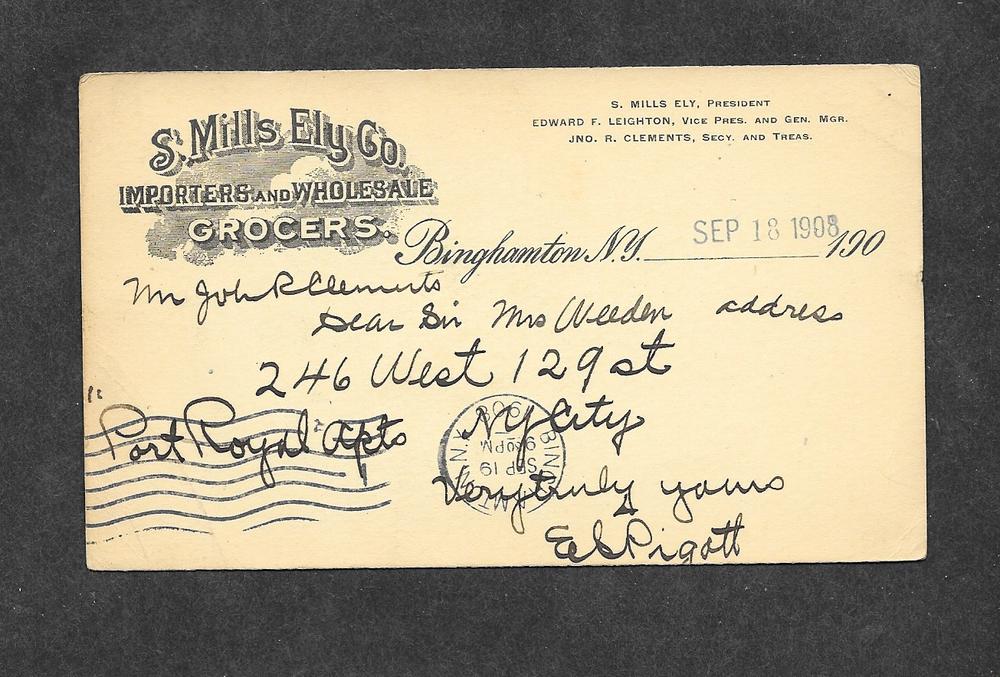 S. Mills Ely Co.
IMPORTERS AND WHOLESALE
GROCERS.
S. MILLS ELY, PRESIDENT
EDWARD F. LEIGHTON, VICE PRES. AND GEN. MGR.
JNO. R. CLEMENTS, SECY. AND TREAS.
Binghamton N.Y. SEP 18 1908 190
Mr John R Clements
Dear Sir Mrs Weeden address
246 West 129 st
"Port Royal Apts NY City
Very truly yours
E S Pigott
SEP 19
9 30 PM
1908
N.Y.